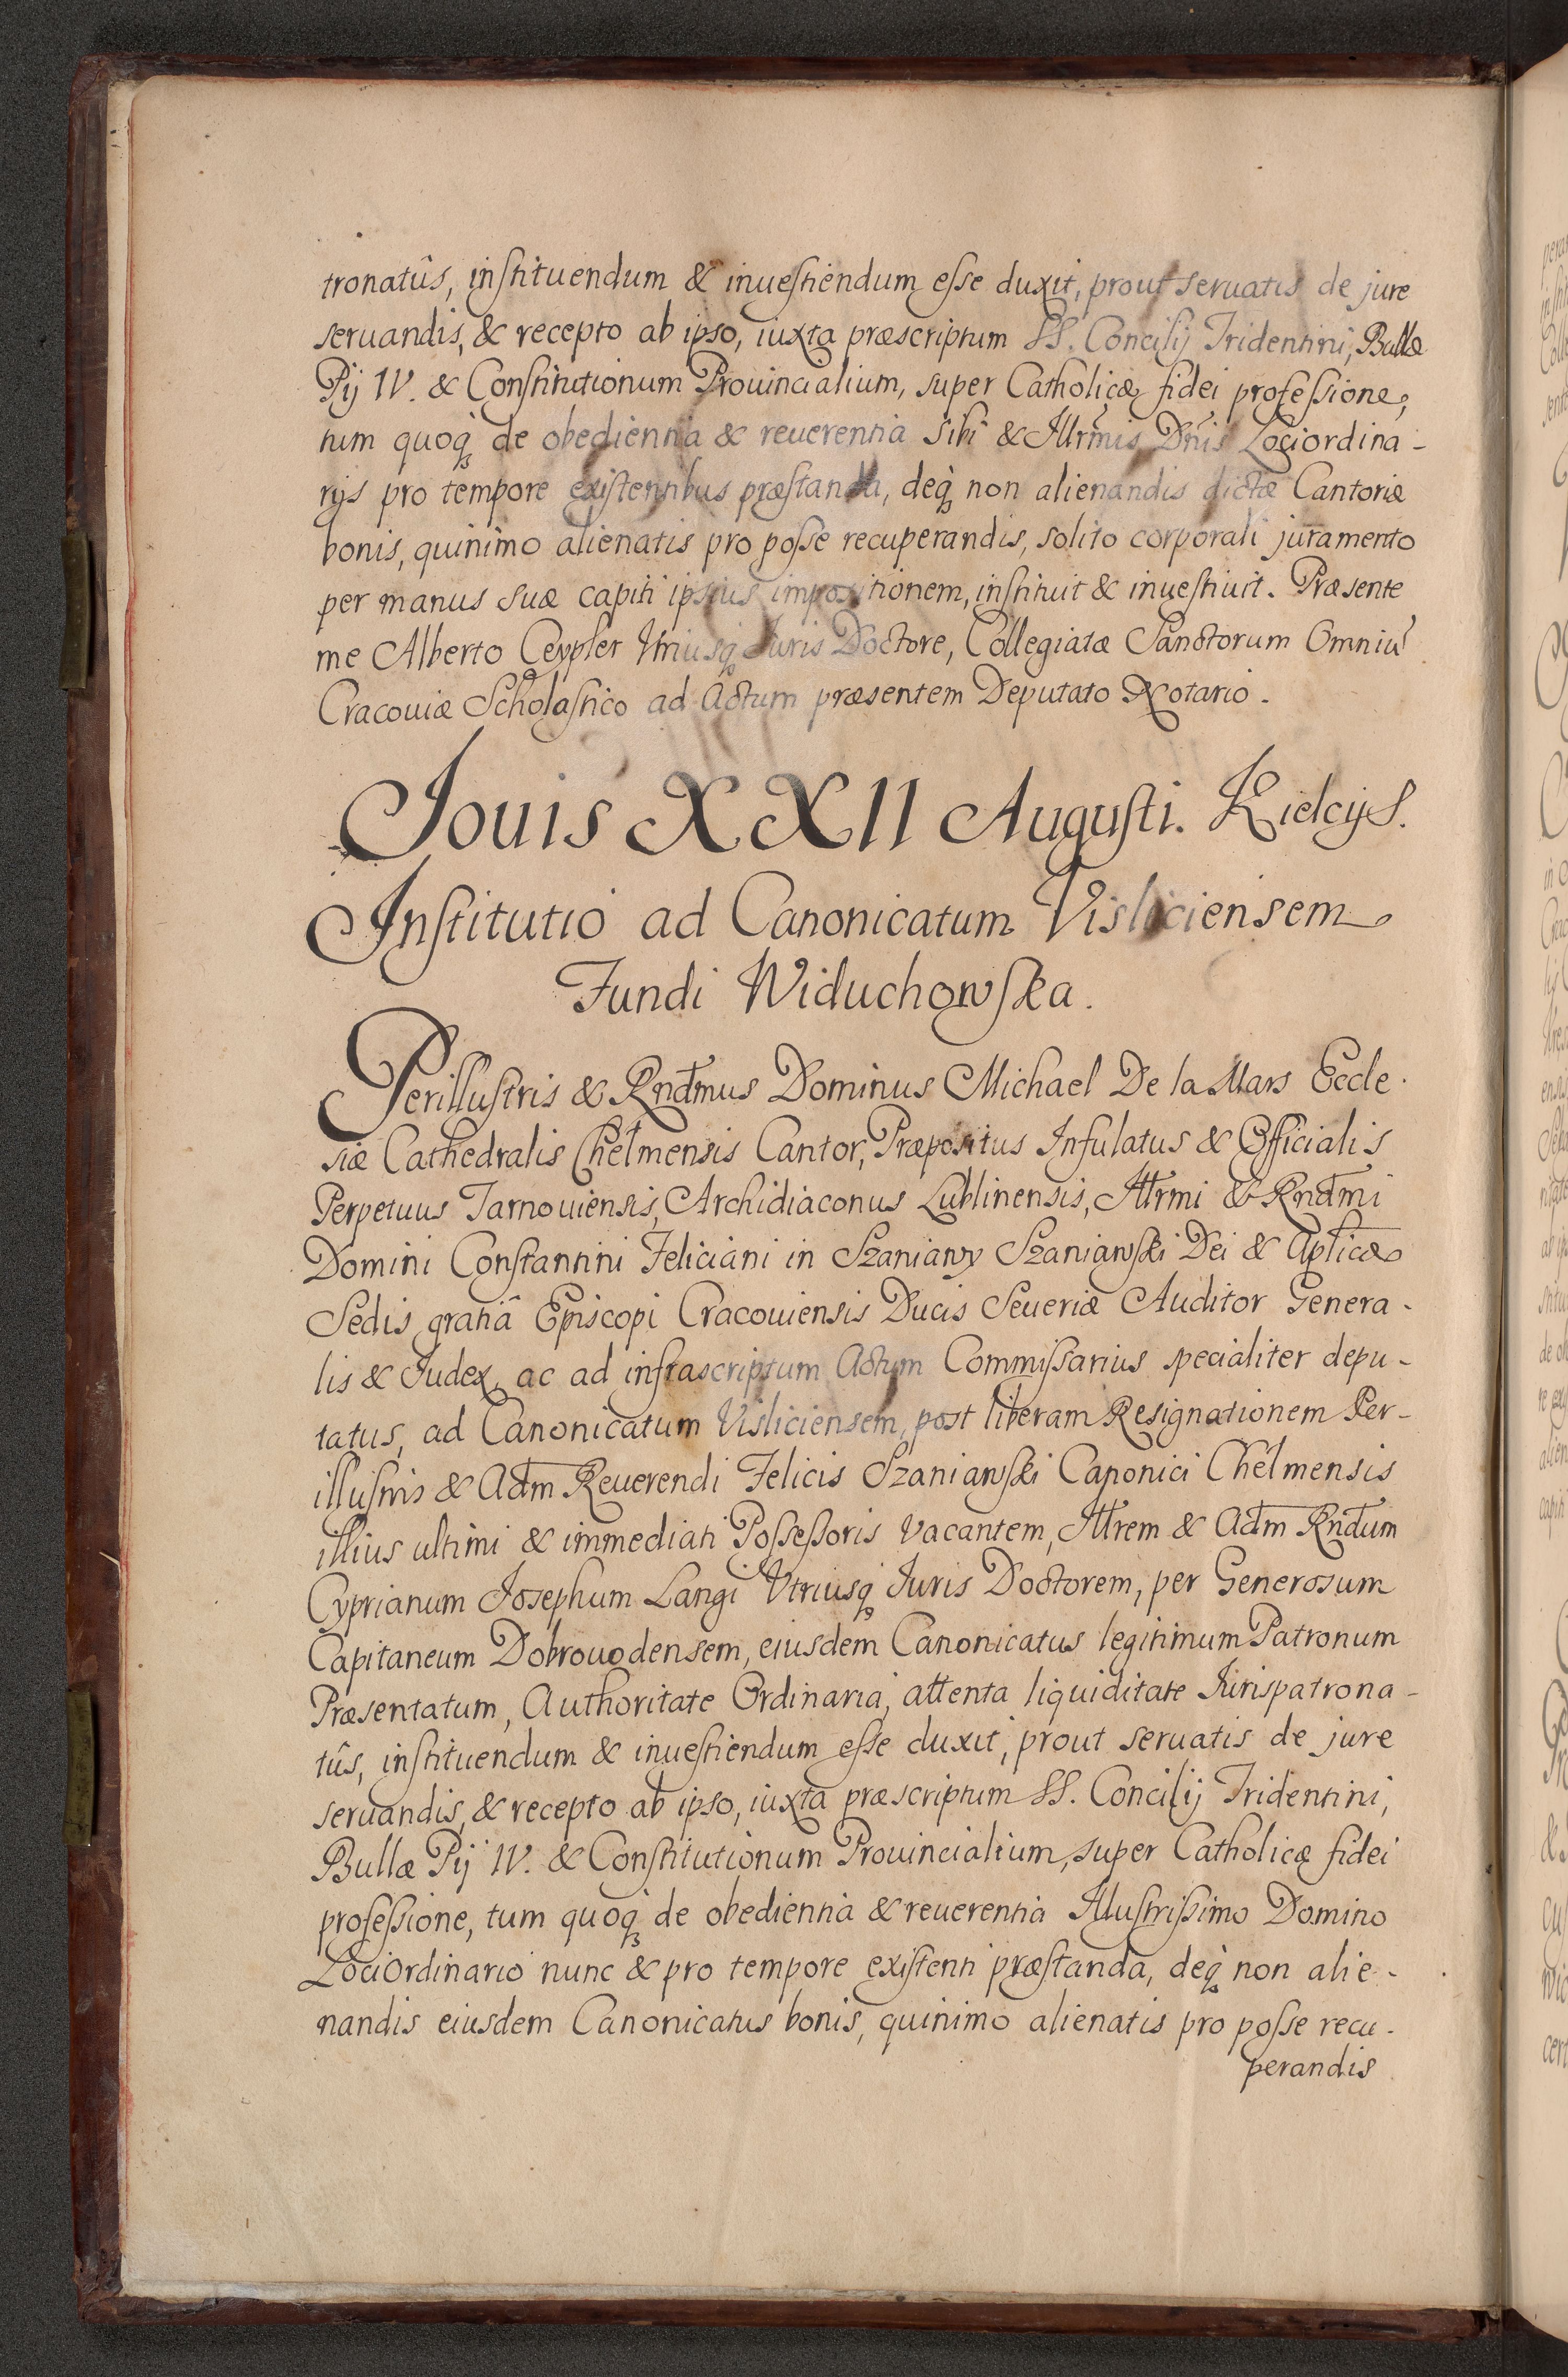 tronatûs, instituendum & inuestiendum esse duxit, prout seruatis de jure
seruandis, & recepto ab ipso, iuxta præscriptum SS. Concilij Tridentini, Bullæ
Pij IV. & Constitutionum Prouincialium, super Catholicæ fidei professione,
tum quoq; de obedientia & reuerentia sibi & Illrmis Dnis Lociordina-
rijs pro tempore existentibus præstanda, deq; non alienandis dictæ Cantoriæ
bonis, quinimo alienatis pro posse recuperandis, solito corporali juramento
per manus suæ capiti ipsius impositionem, instituit & inuestiuit. Præsente
me Alberto Ceypler Vtriusq; Iuris Doctore, Collegiatæ Sanctorum Omniũ
Cracouiæ Scholastico ad Actum præsentem Deputato Notario.
Jouis XXII Augusti. Kielcijs.
Institutio ad Canonicatum Visliciensem
Fundi Widuchowska.
Perillustris & Rndmus Dominus Michael De la Mars Eccle-
siæ Cathedralis Chelmensis Cantor, Præpositus Infulatus & Officialis
Perpetuus Tarnouiensis, Archidiaconus Lublinensis, Illrmi & Rndmi
Domini Constantini Feliciani in Szaniawy Szaniawski Dei & Aplicæ
Sedis gratiâ Episcopi Cracouiensis Ducis Seueriæ Auditor Genera-
lis & Iudex, ac ad infrascriptum Actum Commissarius specialiter depu-
tatus, ad Canonicatum Visliciensem, post liberam Resignationem Per-
illustris & Adm Reuerendi Felicis Szaniawski Canonici Chelmensis
illius ultimi & immediati Possessoris vacantem, Illrem & Adm Rndum
Cyprianum Josephum Langi Vtriusq; Iuris Doctorem, per Generosum
Capitaneum Dobrouodensem, eiusdem Canonicatus legitimum Patronum
Præsentatum, Authoritate Ordinaria, attenta liquiditate Iurispatrona-
tûs, instituendum & inuestiendum esse duxit, prout seruatis de jure
seruandis, & recepto ab ipso, iuxta præscriptum SS. Concilij Tridentini,
Bullæ Pij IV. & Constitutionum Prouincialium, super Catholicæ fidei
professione, tum quoq; de obedientia & reuerentia Illustrissimo Domino
LociOrdinario nunc & pro tempore existenti præstanda, deq; non alie-
nandis eiusdem Canonicatus bonis, quinimo alienatis pro posse recu-
perandis